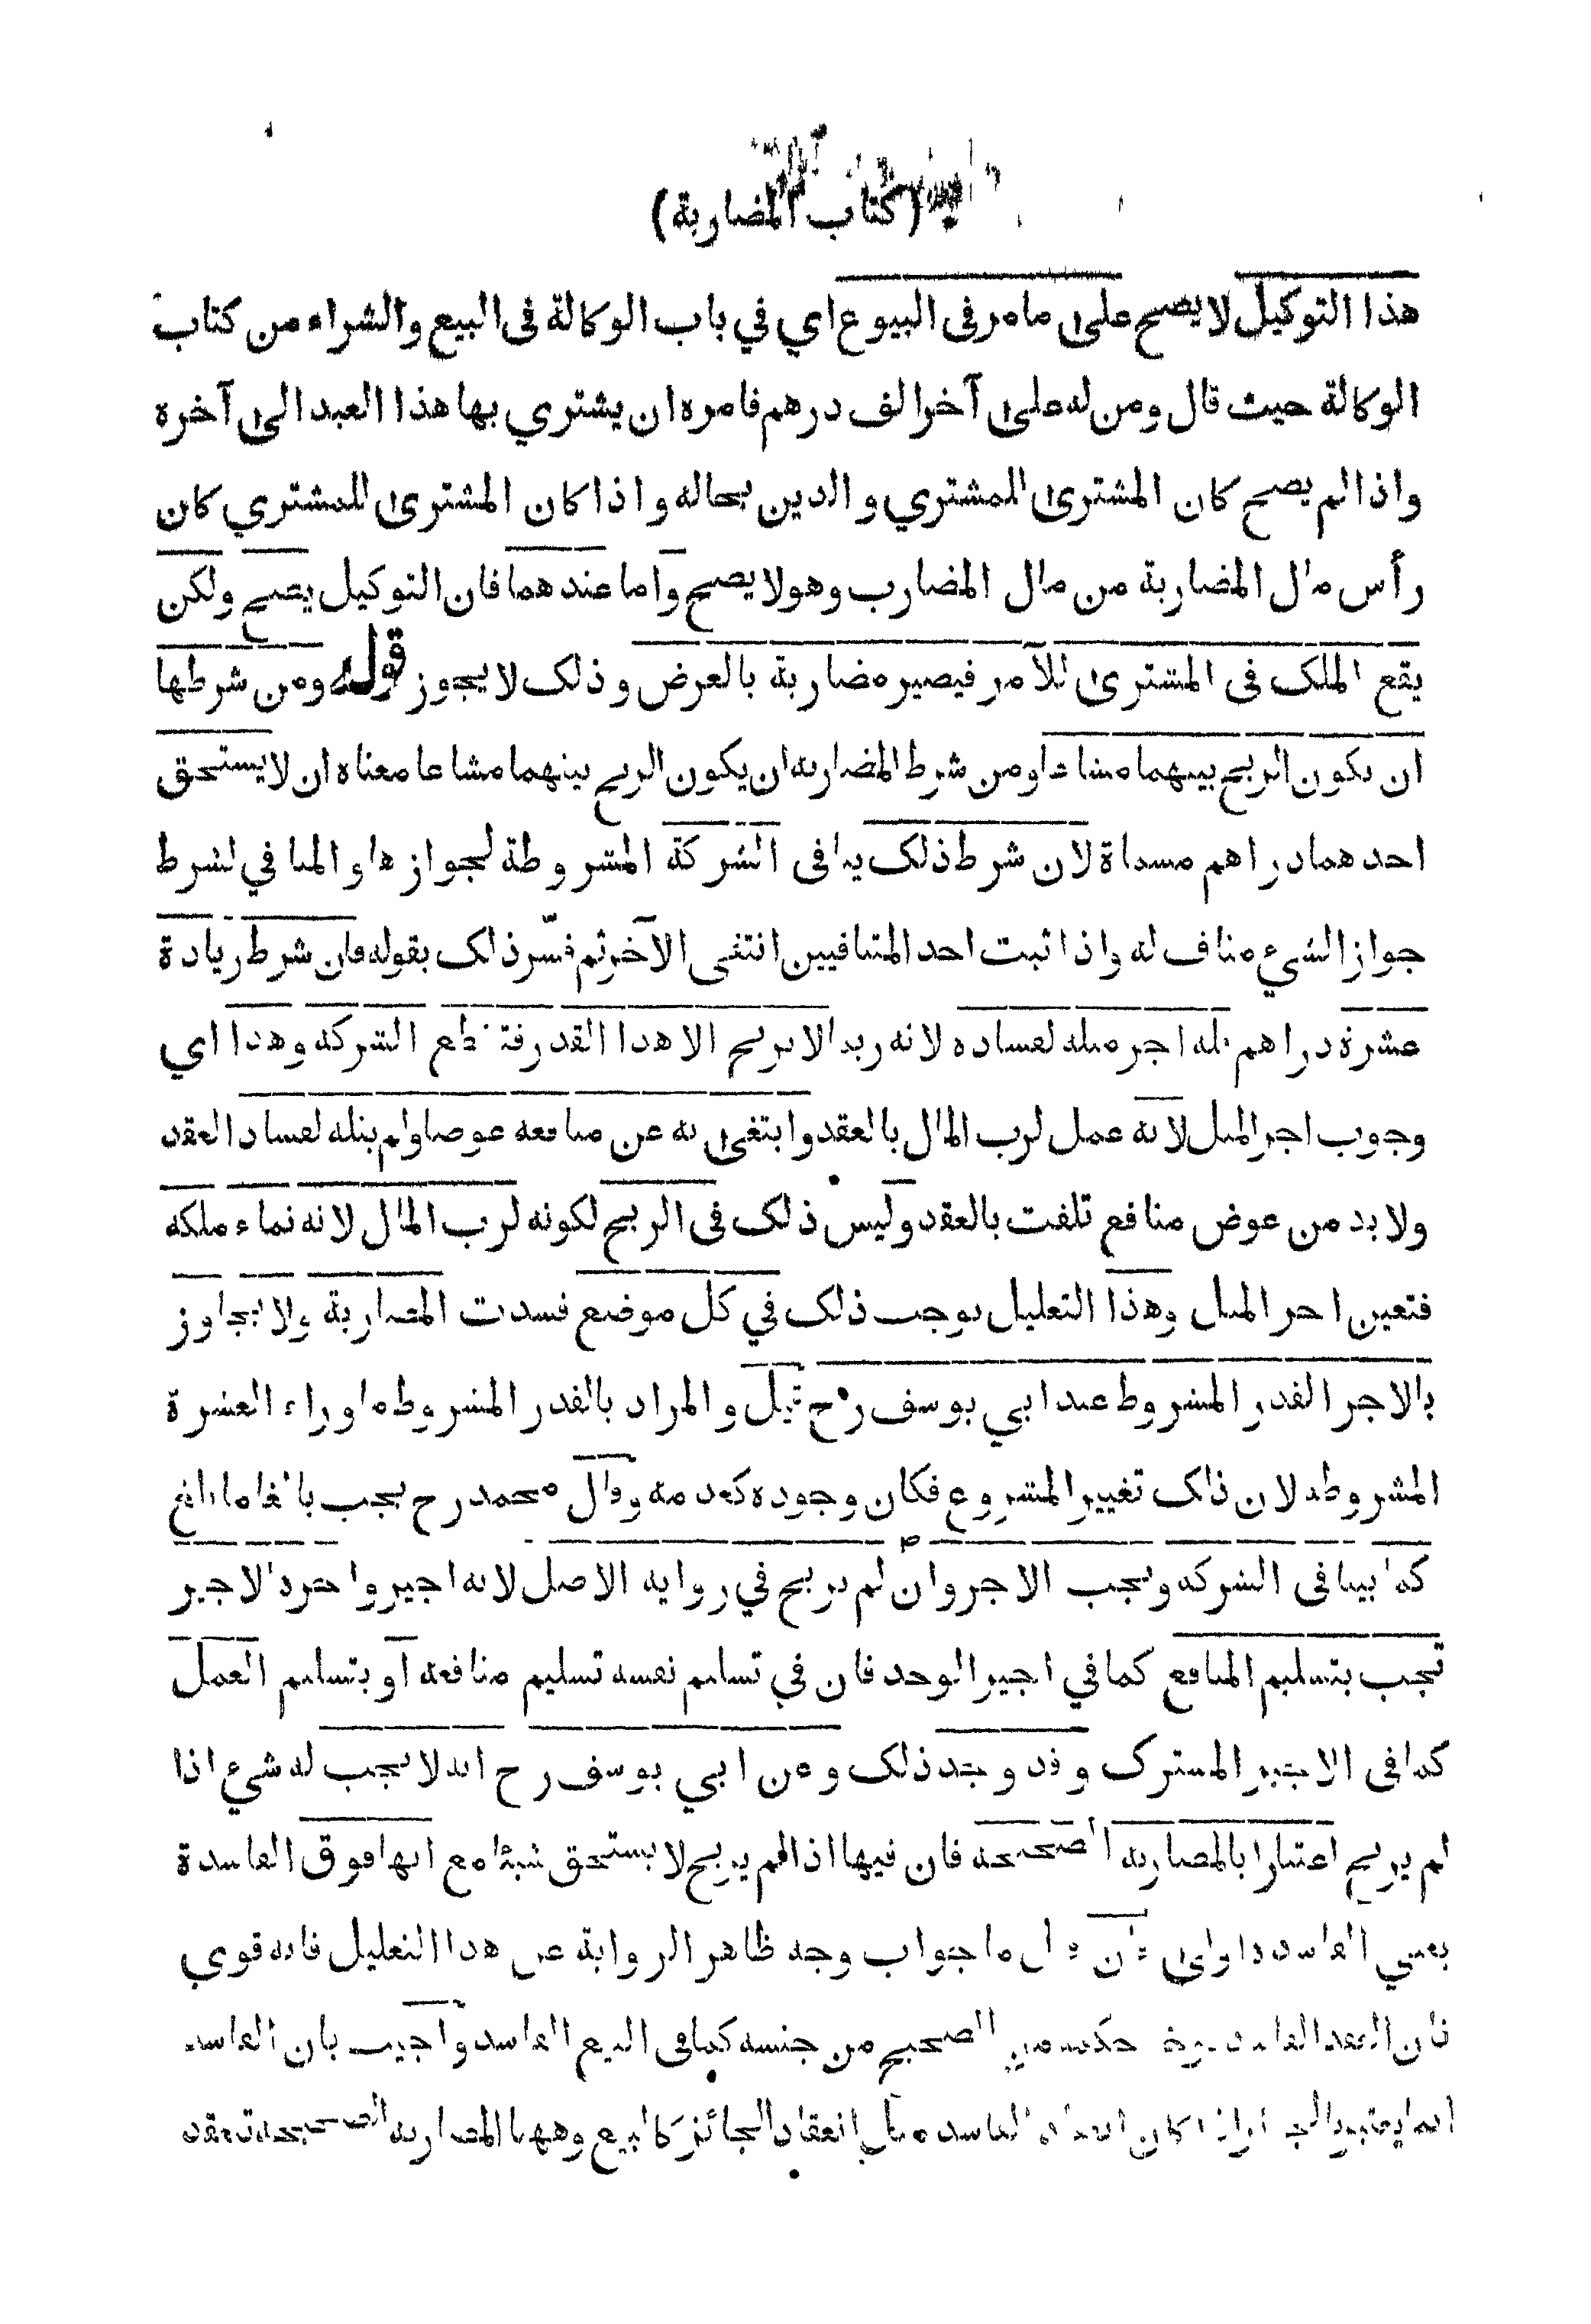 (كتاب المضاربة)
هذا التوكيل لا يصح على ما مر في البيوع اي في باب الوكالة في البيع والشراء من كتاب
الوكالة حيث قال ومن له على آخر الف درهم فامره ان يشتري بها هذا العبد الى آخره
واذا لم يصح كان المشترى للمشتري والدين بحاله واذا كان المشترى للمشتري كان
رأس مال المضاربة من مال المضارب وهو لا يصح واما عندهما فان التوكيل يصح ولكن
يقع الملك في المشترى للآمر فيصير مضاربة بالعرض وذلك لا يجوز قوله ومن شرطها
ان يكون الربح بينهما مشاعا ومن شرط المضاربة ان يكون الربح بينهما مشاعا معناه ان لا يستحق
احدهما دراهم مسماة لان شرط ذلك ينافي الشركة المشروطة لجوازها والمنافي لشرط
جواز الشيء مناف له واذا ثبت احد المتنافيين انتفى الآخر ثم فسّر ذلك بقوله فان شرط زيادة
عشرة دراهم فله اجر مثله لفساده لانه ربما لا يربح الا هذا القدر فتقطع الشركة وهذا اي
وجوب اجر المثل لانه عمل لرب المال بالعقد وابتغى به عن منافعه عوضا ولم ينله لفساد العقد
ولا بد من عوض منافع تلفت بالعقد وليس ذلك في الربح لكونه لرب المال لانه نماء ملكه
فتعين اجر المثل وهذا التعليل يوجب ذلك في كل موضع فسدت المضاربة ولا يجاوز
بالاجر القدر المشروط عند ابي يوسف رح قيل والمراد بالقدر المشروط ما وراء العشرة
المشروطة لان ذلك تغيير المشروع فكان وجوده كعدمه وقال محمد رح يجب بالغا ما بلغ
كما بينا في الشركة ويجب الاجر وان لم يربح في رواية الاصل لانه اجير واجرة الاجير
تجب بتسليم المنافع كما في اجير الوحد فان في تسليم نفسه تسليم منافعه او بتسليم العمل
كما في الاجير المشترك وقد وجد ذلك وعن ابي يوسف رح انه لا يجب له شيء اذا
لم يربح اعتبارا بالمضاربة الصحيحة فان فيها اذا لم يربح لا يستحق شيئا مع انها فوق الفاسدة
يعني الفاسدة اولى فان قيل ما جواب وجه ظاهر الرواية عن هذا التعليل فانه قوي
فان العقد الفاسد يؤخذ حكمه من الصحيح من جنسه كما في البيع الفاسد واجيب بان الفاسد
انما يعتبر بالجائز اذا كان انعقاد الفاسد مثل انعقاد الجائز كالبيع وههنا المضاربة الصحيحة تنعقد